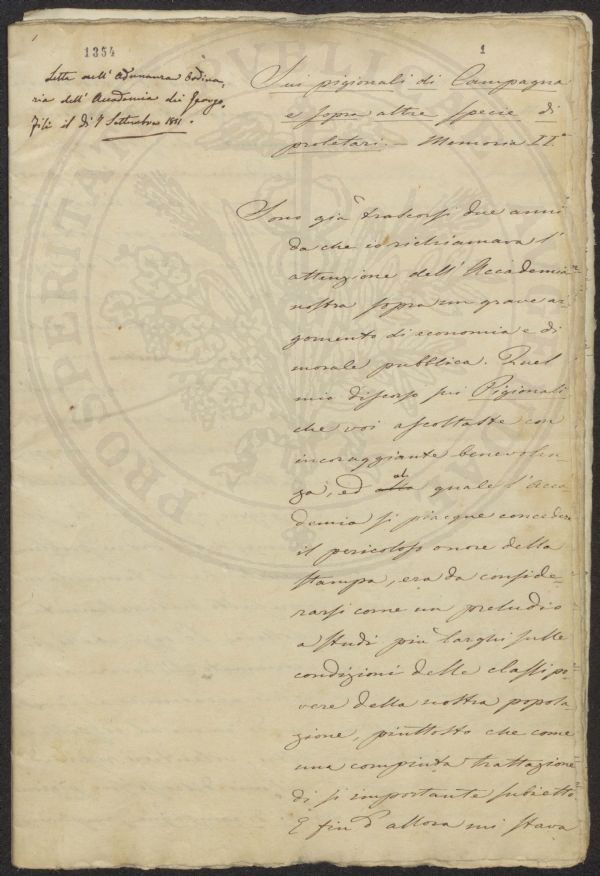 1354
1
Letta nell' Adunanza Ordina-
ria dell' Accademia dei Georgo-
fili il dì 7 Settembre 1851.
Sui pigionali di Campagna
e sopra altre specie di
proletari. — Memoria IIa
Sono già trascorsi due anni
da che io richiamava l'
attenzione dell' Accademia
nostra sopra un grave ar-
gomento di economia e di
morale pubblica. Quel
mio discorso sui Pigionali
che voi ascoltaste con
incoraggiante benevolen-
za, ed alla al quale l'Acca
demia si piacque concedere
il pericoloso onore della
stampa, era da conside-
rarsi come un preludio
a studi più larghi sulle
condizioni delle classi po-
vere della nostra popola-
zione, piuttosto che come
una compiuta trattazione
di sì importante subietto
E fin d'allora mi stava
PROSPERITÀ